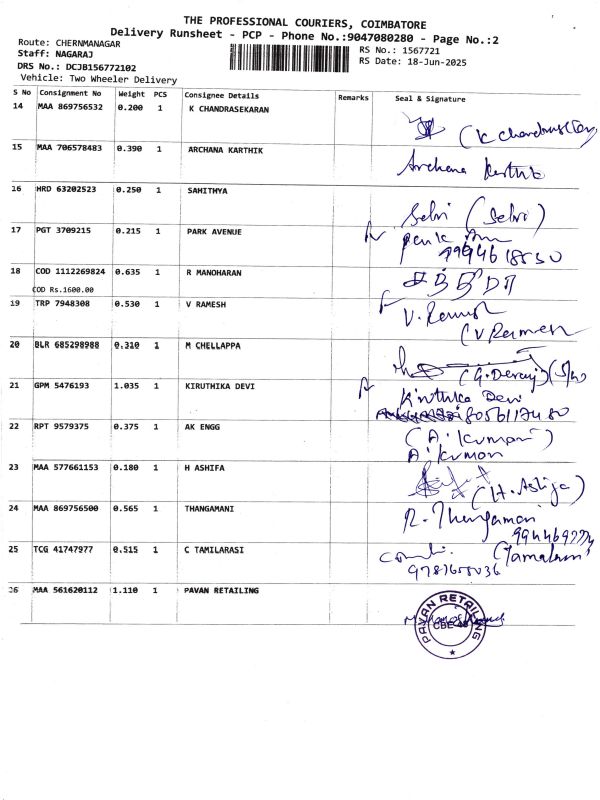 THE PROFESSIONAL COURIERS, COIMBATORE
Delivery Runsheet - PCP - Phone No.:9047080280 - Page No.:2
Route: CHERNMANAGAR
Staff: NAGARAJ
DRS No.: DCJB156772102
Vehicle: Two Wheeler Delivery
RS No.: 1567721
RS Date: 18-Jun-2025
S No Consignment No Weight PCS Consignee Details Remarks Seal & Signature
14 MAA 869756532 0.200 1 K CHANDRASEKARAN
15 MAA 706578483 0.390 1 ARCHANA KARTHIK Archana Karthik
16 HRD 63202523 0.250 1 SAHITHYA Selvi (Selvi)
17 PGT 3709215 0.215 1 PARK AVENUE
18 COD 1112269824 0.635 1 R MANOHARAN
COD Rs.1600.00
19 TRP 7948308 0.530 1 V RAMESH V. Ramesh
(V Ramesh
20 BLR 685298988 0.310 1 M CHELLAPPA
21 GPM 5476193 1.035 1 KIRUTHIKA DEVI Kiruthika Devi
22 RPT 9579375 0.375 1 AK ENGG (A. Kumar)
A. Kumar
23 MAA 577661153 0.180 1 H ASHIFA
24 MAA 869756500 0.565 1 THANGAMANI R. Thangamani
25 TCG 41747977 0.515 1 C TAMILARASI
26 MAA 561620112 1.110 1 PAVAN RETAILING PAVAN RETAILING